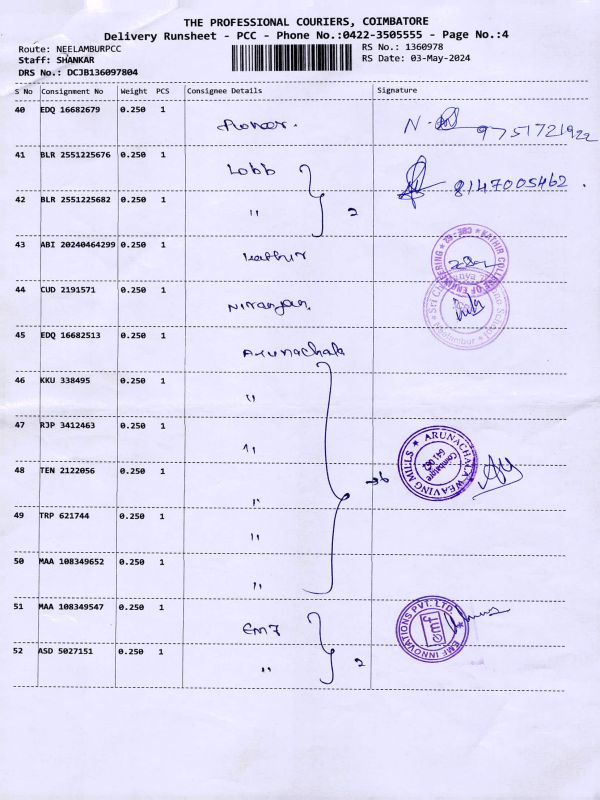 THE PROFESSIONAL COURIERS, COIMBATORE
Delivery Runsheet - PCC - Phone No.:0422-3505555 - Page No.:4
Route: NEELAMBURPCC RS No.: 1360978
Staff: SHANKAR RS Date: 03-May-2024
DRS No.: DCJB136097804
S No Consignment No Weight PCS Consignee Details Signature
40 EDQ 16682679 0.250 1
N. 9751721922
41 BLR 2551225676 0.250 1 Lobb
8147005462.
42 BLR 2551225682 0.250 1 " 2
43 ABI 20240464299 0.250 1 kathir
KATHIR COLLEGE OF ENGINEERING CBE-62
44 CUD 2191571 0.250 1 Niranjan.
Neelambur
45 EDQ 16682513 0.250 1 Arunachala
46 KKU 338495 0.250 1 "
47 RJP 3412463 0.250 1 "
ARUNACHALA WEAVING MILLS
Coimbatore
641 062
48 TEN 2122056 0.250 1 " 6
49 TRP 621744 0.250 1 "
50 MAA 108349652 0.250 1 "
51 MAA 108349547 0.250 1 EMF
EMF INNOVATIONS PVT. LTD.
emf
52 ASD 5027151 0.250 1 " 2